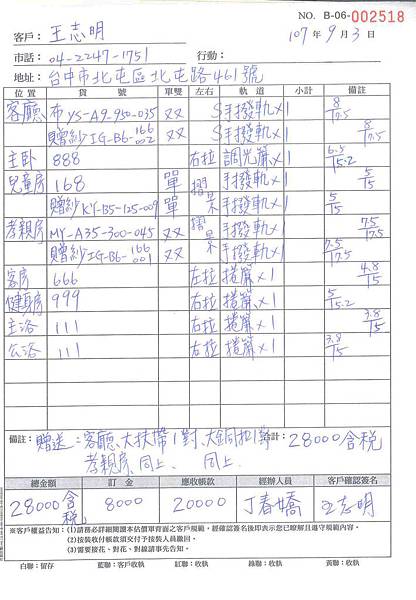 NO. B-06-002518
客戶：王志明
107年9月3日
市話：04-2247-1751 行動：
地址：台中市北屯區北屯路461號
位置 貨號 單雙 左右 軌道 小計 備註
客廳 布YS-A9-950-035 双 S手撥軌×1 8/17.5
贈紗IG-B6-166/002 双 S手撥軌×1 8/17.5
主臥 888 右拉 調光簾×1 6.5/15.2
兒童房 168 單 摺景 手撥軌×1 5/15
贈紗KY-B5-125-009 單 手撥軌×1 5/15
孝親房 MY-A35-300-045 双 摺景 手撥軌×1 7.5/17.5
贈紗IG-B6-166/001 双 手撥軌×1 7.5/17.5
客房 666 左拉 捲簾×1 4.8/15
健身房 999 右拉 捲簾×1 5/15.2
主浴 111 右拉 捲簾×1 3.8/15
公浴 111 右拉 捲簾×1 3.8/15
備註：贈送：客廳、大扶帶1對、大銅扣1對 合計：28000含稅
孝親房、同上、同上.
總金額 訂金 應收帳款 經辦人員 客戶確認簽名
28000含稅 8000 20000 丁春嬌 王志明
※客戶權益告知：(1)請務必詳細閱讀本估價單背面之客戶規範，經確認簽名後即表示您已瞭解且遵守規範內容。
(2)按裝收付帳款須交付予按裝人員撤回。
(3)需要接花、對花、對線請事先告知。
白聯：留存 藍聯：客戶收執 紅聯：收執 綠聯：收執 黃聯：收執